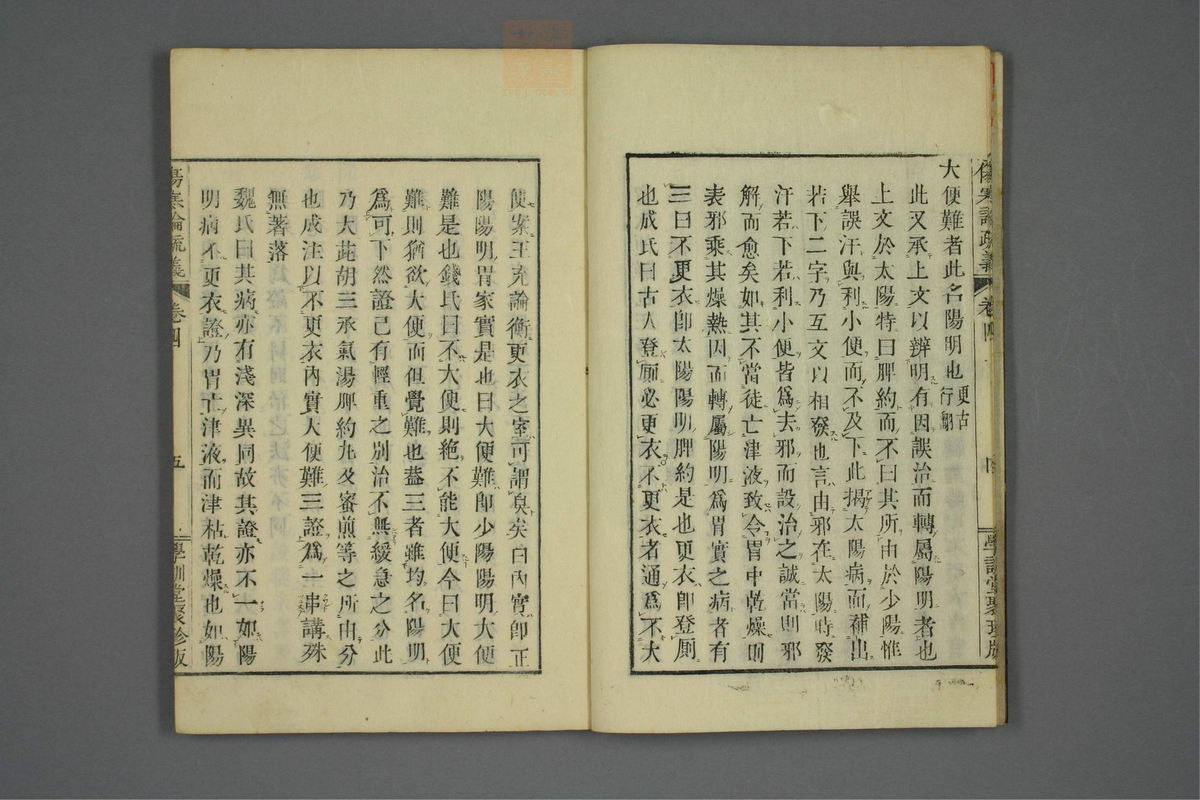 傷寒論疏義
卷四
四
學訓堂聚珍版
大便難者此名陽明也更古行翻
此又承上文以辨明有因誤治而轉屬陽明者也
上文於太陽特曰脾約而不曰其所由於少陽惟
舉誤汗與利小便而不及下此揭太陽病而補出
若下二字乃互文以相發也言由邪在太陽時發
汗若下若利小便皆爲去邪而設治之誠當則邪
解而愈矣如其不當徒亡津液致令胃中乾燥則
表邪乘其燥熱因而轉屬陽明爲胃實之病者有
三曰不更衣卽太陽陽明脾約是也更衣卽登厠
也成氏曰古人登厠必更衣不更衣者通爲不大
便案王充論衡更衣之室可謂臭矣曰內實卽正
陽陽明胃家實是也曰大便難卽少陽陽明大便
難是也錢氏曰不大便則絕不能大便今曰大便
難則猶欲大便而但覺難也蓋三者雖均名陽明
爲可下然證已有輕重之別治不無緩急之分此
乃大茈胡三承氣湯脾約丸及蜜煎等之所由分
也成注以不更衣內實大便難三證爲一串講殊
無著落
魏氏曰其病亦有淺深異同故其證亦不一如陽
明病不更衣證乃胃亡津液而津枯乾燥也如陽
傷寒論疏義
卷四
五
學訓堂聚珍版